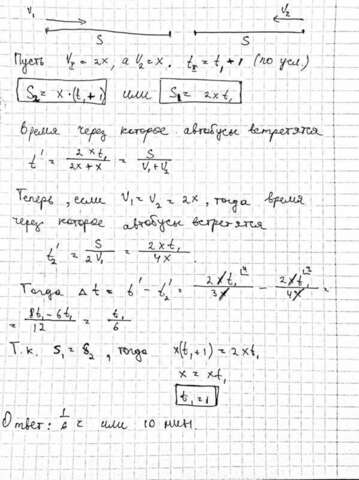 V₁ V₂
S S
Пусть V₂ = 2x, а V₂ = x. t₂ = t₁ + 1 (по усл.)
S₂ = x·(t₁+1) или S₁ = 2xt₁
Время через которое автобусы встретятся
t' = 2xt₁/(2x+x) = S/(V₁+V₂)
Теперь, если V₁ = V₂ = 2x, тогда время
через которое автобусы встретятся
t₂' = S/(2V₁) = 2xt₁/4x.
Тогда Δt = t' - t₂' = 2xt₁/3x - 2xt₁/4x =
= (8t₁ - 6t₁)/12 = t₁/6
Т.к. S₁ = S₂, тогда x(t₁+1) = 2xt₁
x = xt₁
t₁ = 1
Ответ: или 10 мин.